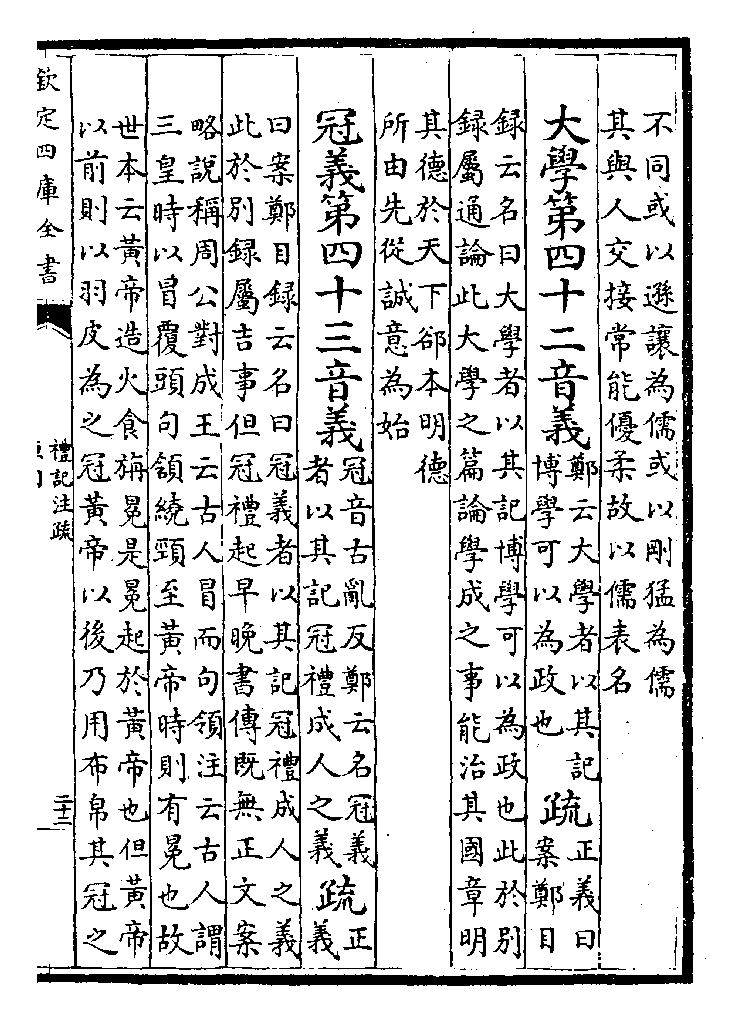 不同或以遜讓為儒或以剛猛為儒
其與人交接常能優柔故以儒表名
大學第四十二音義
鄭云大學者以其記
博學可以為政也
疏
正義曰
案鄭目
録云名曰大學者以其記博學可以為政也此於别
録屬通論此大學之篇論學成之事能治其國章明
其德於天下郤本明德
所由先從誠意為始
冠義第四十三音義
冠音古亂反鄭云名冠義
者以其記冠禮成人之義
疏
正
義
曰案鄭目録云名曰冠義者以其記冠禮成人之義
此於别録屬吉事但冠禮起早晚書傳既無正文案
略說稱周公對成王云古人冒而句領注云古人謂
三皇時以冒覆頭句頷繞頸至黃帝時則有冕也故
世本云黃帝造火食旃冕是冕起於黃帝也但黃帝
以前則以羽皮為之冠黃帝以後乃用布帛其冠之
欽定四庫全書
禮記注疏